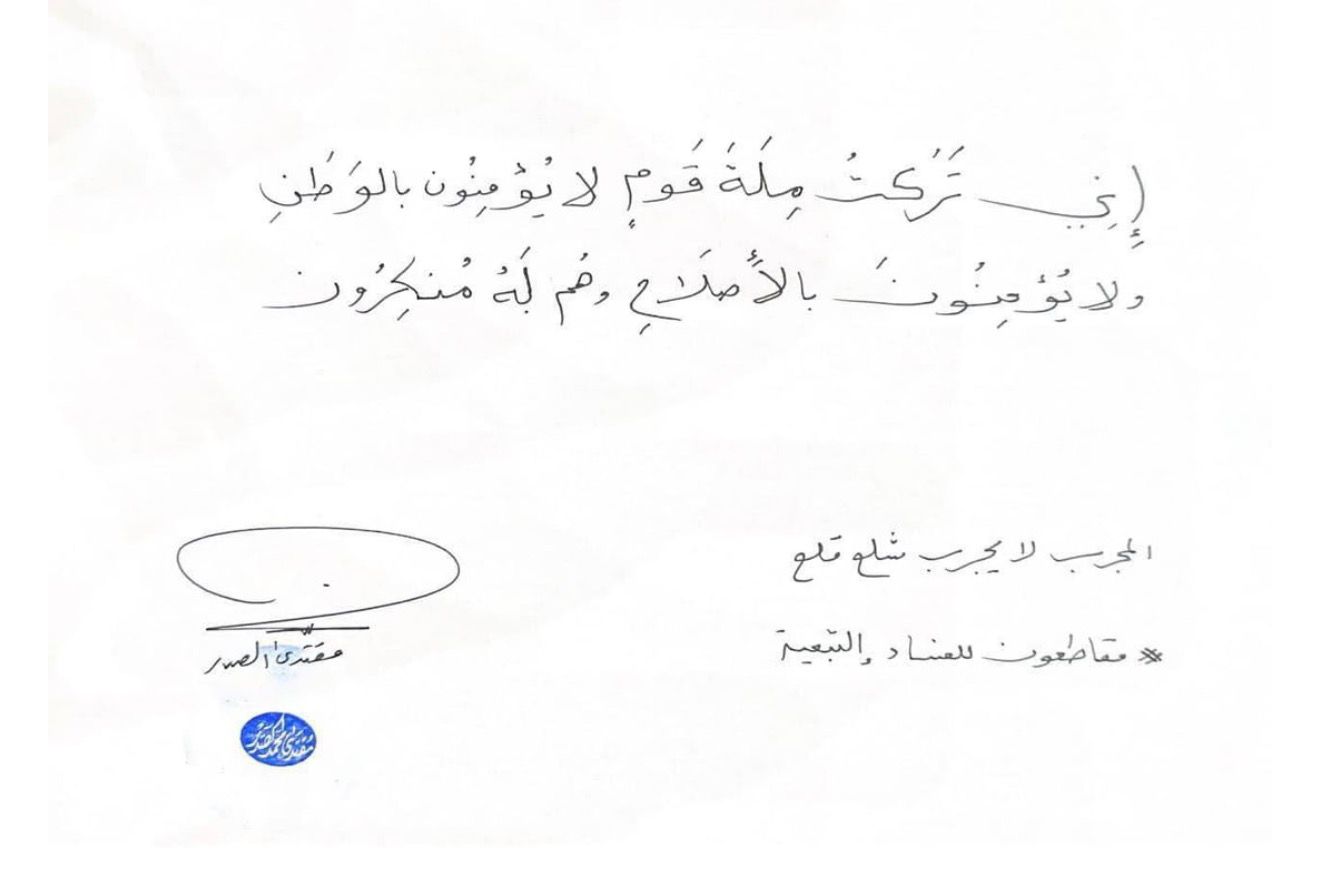 إِنِّي تَرَكتُ مِلَةَ قَومٍ لا يُؤمِنُون بالوَطَنِ
ولا يُؤمِنُونَ بالأَصلَاحِ وهُم لَهُ مُنكِرُون
المجرب لا يجرب شلع قلع
* مقاطعون للفساد والتبعية
مقتدى الصدر
مقتدى محمد الصدر